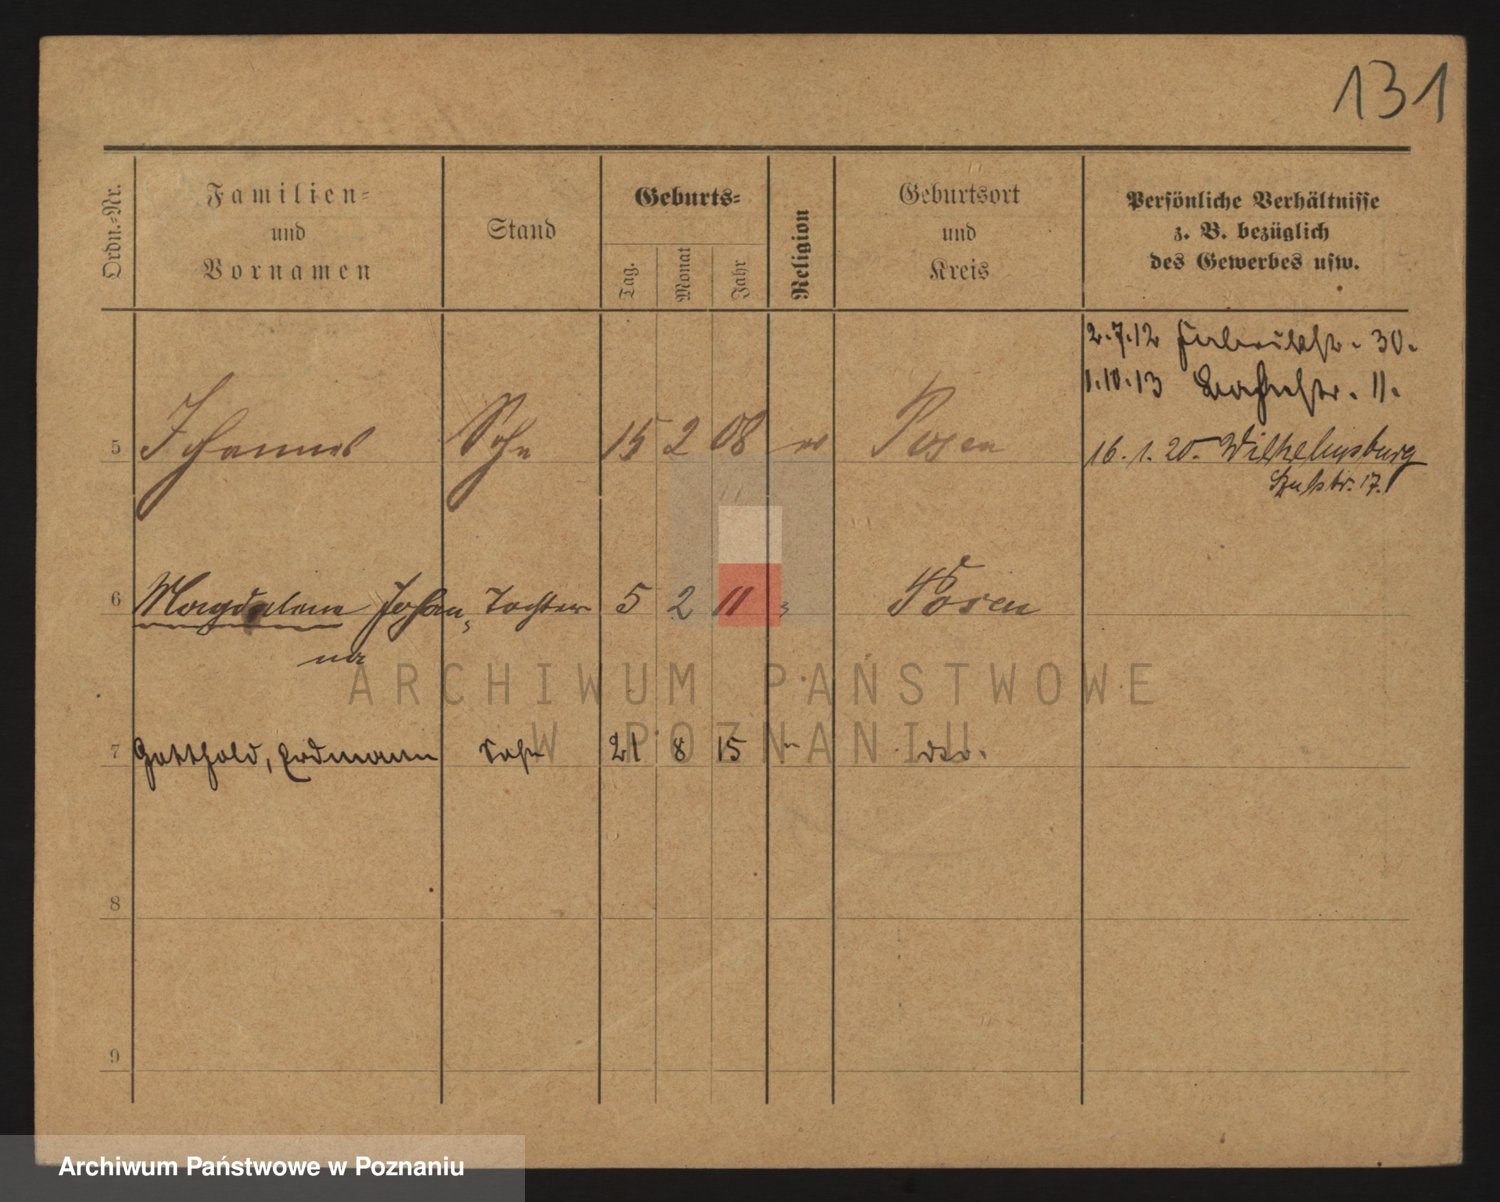 131
Ordn.-Nr.
Familien-
und
Vornamen
Stand
Geburts-
Tag.
Monat
Jahr
Religion
Geburtsort
und
Kreis
Persönliche Verhältnisse
z. B. bezüglich
des Gewerbes usw.
2.7.12 Fabrikstr. 30.
1.10.13 11.
5 Johannes Sohn 15 2 08 ev Posen
16.1.20. Wilhelmsburg
17.
6 Magdalena Johan- Tochter 5 2 11 Posen
na
7 Gotthold, Erdmann Sohn 21 8 15
8
9
ARCHIWUM PAŃSTWOWE
W POZNANIU
Archiwum Państwowe w Poznaniu